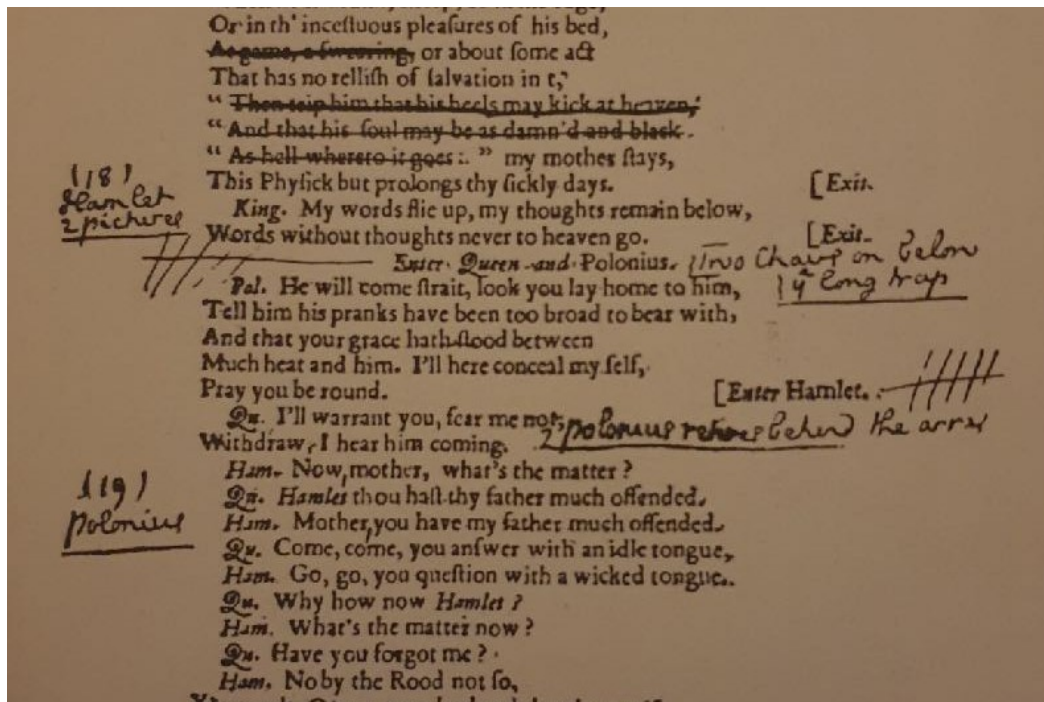 Or in th' inceſtuous pleaſures of his bed,
At game, a ſwearing, or about ſome act
That has no relliſh of ſalvation in t,
“ Then trip him that his heels may kick at heaven,
“ And that his ſoul may be as damn'd and black
“ As hell whereto it goes : ” my mother ſtays,
This Phyſick but prolongs thy ſickly days. [Exit.
(18)
Hamlet
2 pictures
King. My words flie up, my thoughts remain below,
Words without thoughts never to heaven go. [Exit.
Enter Queen and Polonius. Two Chairs on below
yͤ long trap
Pol. He will come ſtrait, look you lay home to him,
Tell him his pranks have been too broad to bear with,
And that your grace hath ſtood between
Much heat and him. I'll here conceal my ſelf,
Pray you be round. [Enter Hamlet.
Qu. I'll warrant you, fear me not,
Withdraw, I hear him coming. polonius retires behind the arras
Ham. Now, mother, what's the matter ?
(19)
polonius
Qu. Hamlet thou haſt thy father much offended.
Ham. Mother, you have my father much offended.
Qu. Come, come, you anſwer with an idle tongue,
Ham. Go, go, you queſtion with a wicked tongue.
Qu. Why how now Hamlet ?
Ham. What's the matter now ?
Qu. Have you forgot me ?
Ham. No by the Rood not ſo,